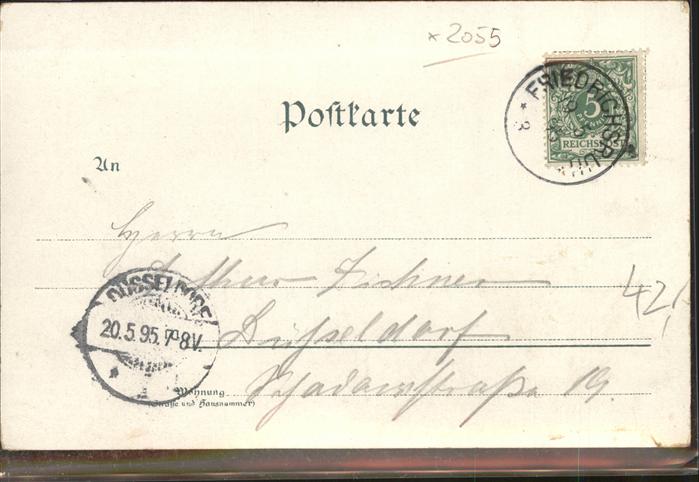 *2055
Postkarte
FRIEDRICHSRUH
5
REICHSPOST
An
Herrn
Arthur Fichner
42,-
DÜSSELDORF
20.5.95. 7-8V.
1
Düsseldorf
Schadowstraße 19.
Wohnung
(Straße und Hausnummer)